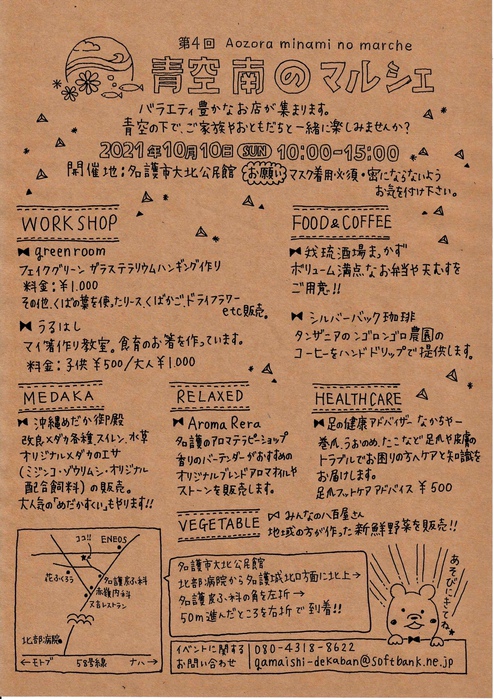 第4回 Aozora minami no marche
青空南のマルシェ
バラエティ豊かなお店が集まります。
青空の下で、ご家族やおともだちと一緒に楽しみませんか？
2021年10月10日(SUN) 10:00-15:00
開催地：名護市大北公民館 お願い マスク着用必須・密にならないよう
お気を付け下さい。
WORK SHOP
green room
フェイクグリーン ガラステラリウムハンギング作り
料金：¥1.000
その他、くばの葉を使ったリース、くばかご、ドライフラワー
etc販売。
うるはし
マイ箸作り教室。食育のお箸を作っています。
料金：子供¥500/大人¥1.000
FOOD&COFFEE
我琉酒場まっかず
ボリューム満点なお弁当や天むすを
ご用意!!
シルバーバック珈琲
タンザニアのンゴロンゴロ農園の
コーヒーをハンドドリップで提供します。
MEDAKA
沖縄めだか御殿
改良メダカ各種、スイレン、水草
オリジナルメダカのエサ
(ミジンコ・ゾウリムシ・オリジナル
配合飼料)の販売。
大人気の「めだかすくい」もやります!!
RELAXED
Aroma Rera
名護のアロマテラピーショップ
香りのバーテンダーがおすすめの
オリジナルブレンドアロマオイルや
ストーンを販売します。
HEALTH CARE
足の健康アドバイザー なかちゃー
巻爪、うおのめ、たこなど足爪や皮膚の
トラブルでお困りの方へケアと知識を
お届けします。
足爪フットケアアドバイス ¥500
VEGETABLE
みんなの八百屋さん
地域の方が作った新鮮野菜を販売!!
ココ!!
ENEOS
花ふくろう
名護皮ふ科
赤嶺内科
スぎレストラン
北部病院
←モトブ 58号線 ナハ→
名護市大北公民館
北部病院から名護城北口方面に北上→
名護皮ふ科の角を左折→
50m進んだところを右折で到着!!
あそびにきてね。
イベントに関する
お問い合わせ
080-4318-8622
gamaishi-dekaban@softbank.ne.jp